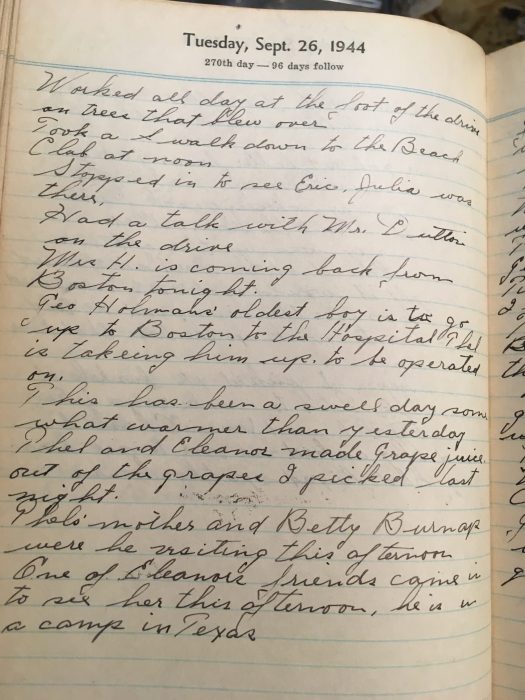 Tuesday, Sept. 26, 1944
270th day — 96 days follow
Worked all day at the foot of the drive
on trees that blew over
Took a walk down to the Beach
Club at noon
Stopped in to see Eric. Julia was
there.
Had a talk with Mr. Dutton
on the drive
Mrs H. is coming back from
Boston tonight.
Geo Holmans' oldest boy is to go
up to Boston to the Hospital Phel
is takeing him up. to be operated
on.
This has been a swell day some
what warmer than yesterday
Phel and Eleanor made Grape juice
out of the grapes I picked last
night.
Phels' mother and Betty Burnap
were he visiting this afternoon
One of Eleanor's friends came in
to see her this afternoon, he is in
a camp in Texas